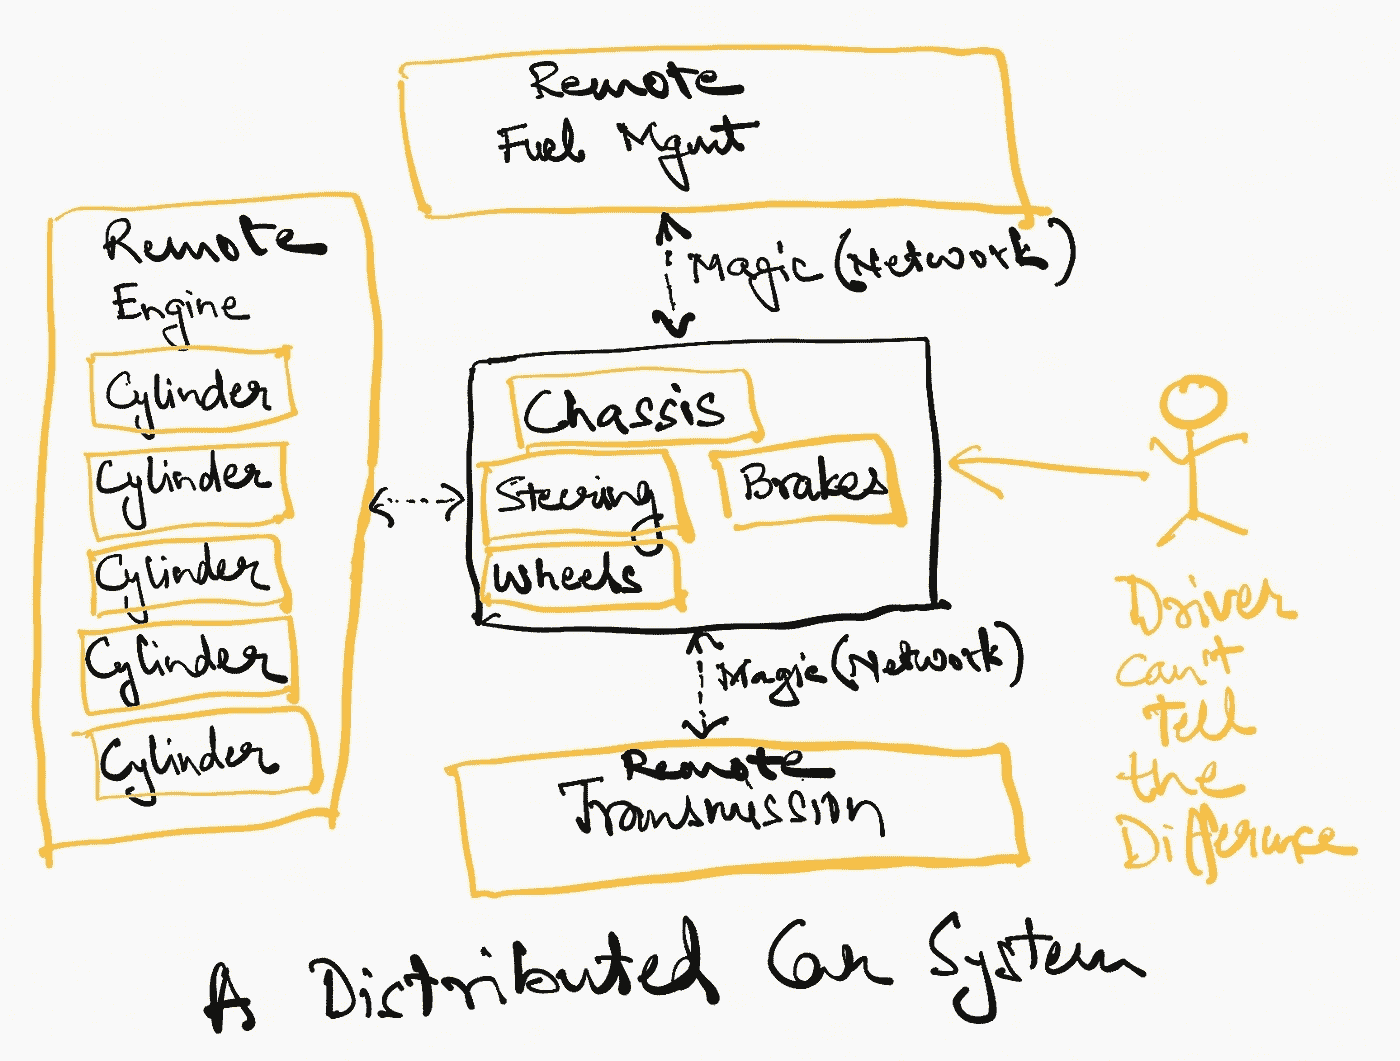 Remote
Fuel Mgmt
Magic (Network)
Remote
Engine
Cylinder
Cylinder
Cylinder
Cylinder
Cylinder
Chassis
Steering
Brakes
Wheels
Magic (Network)
Remote
Transmission
Driver
Can't
Tell
the
Difference
A Distributed Car System